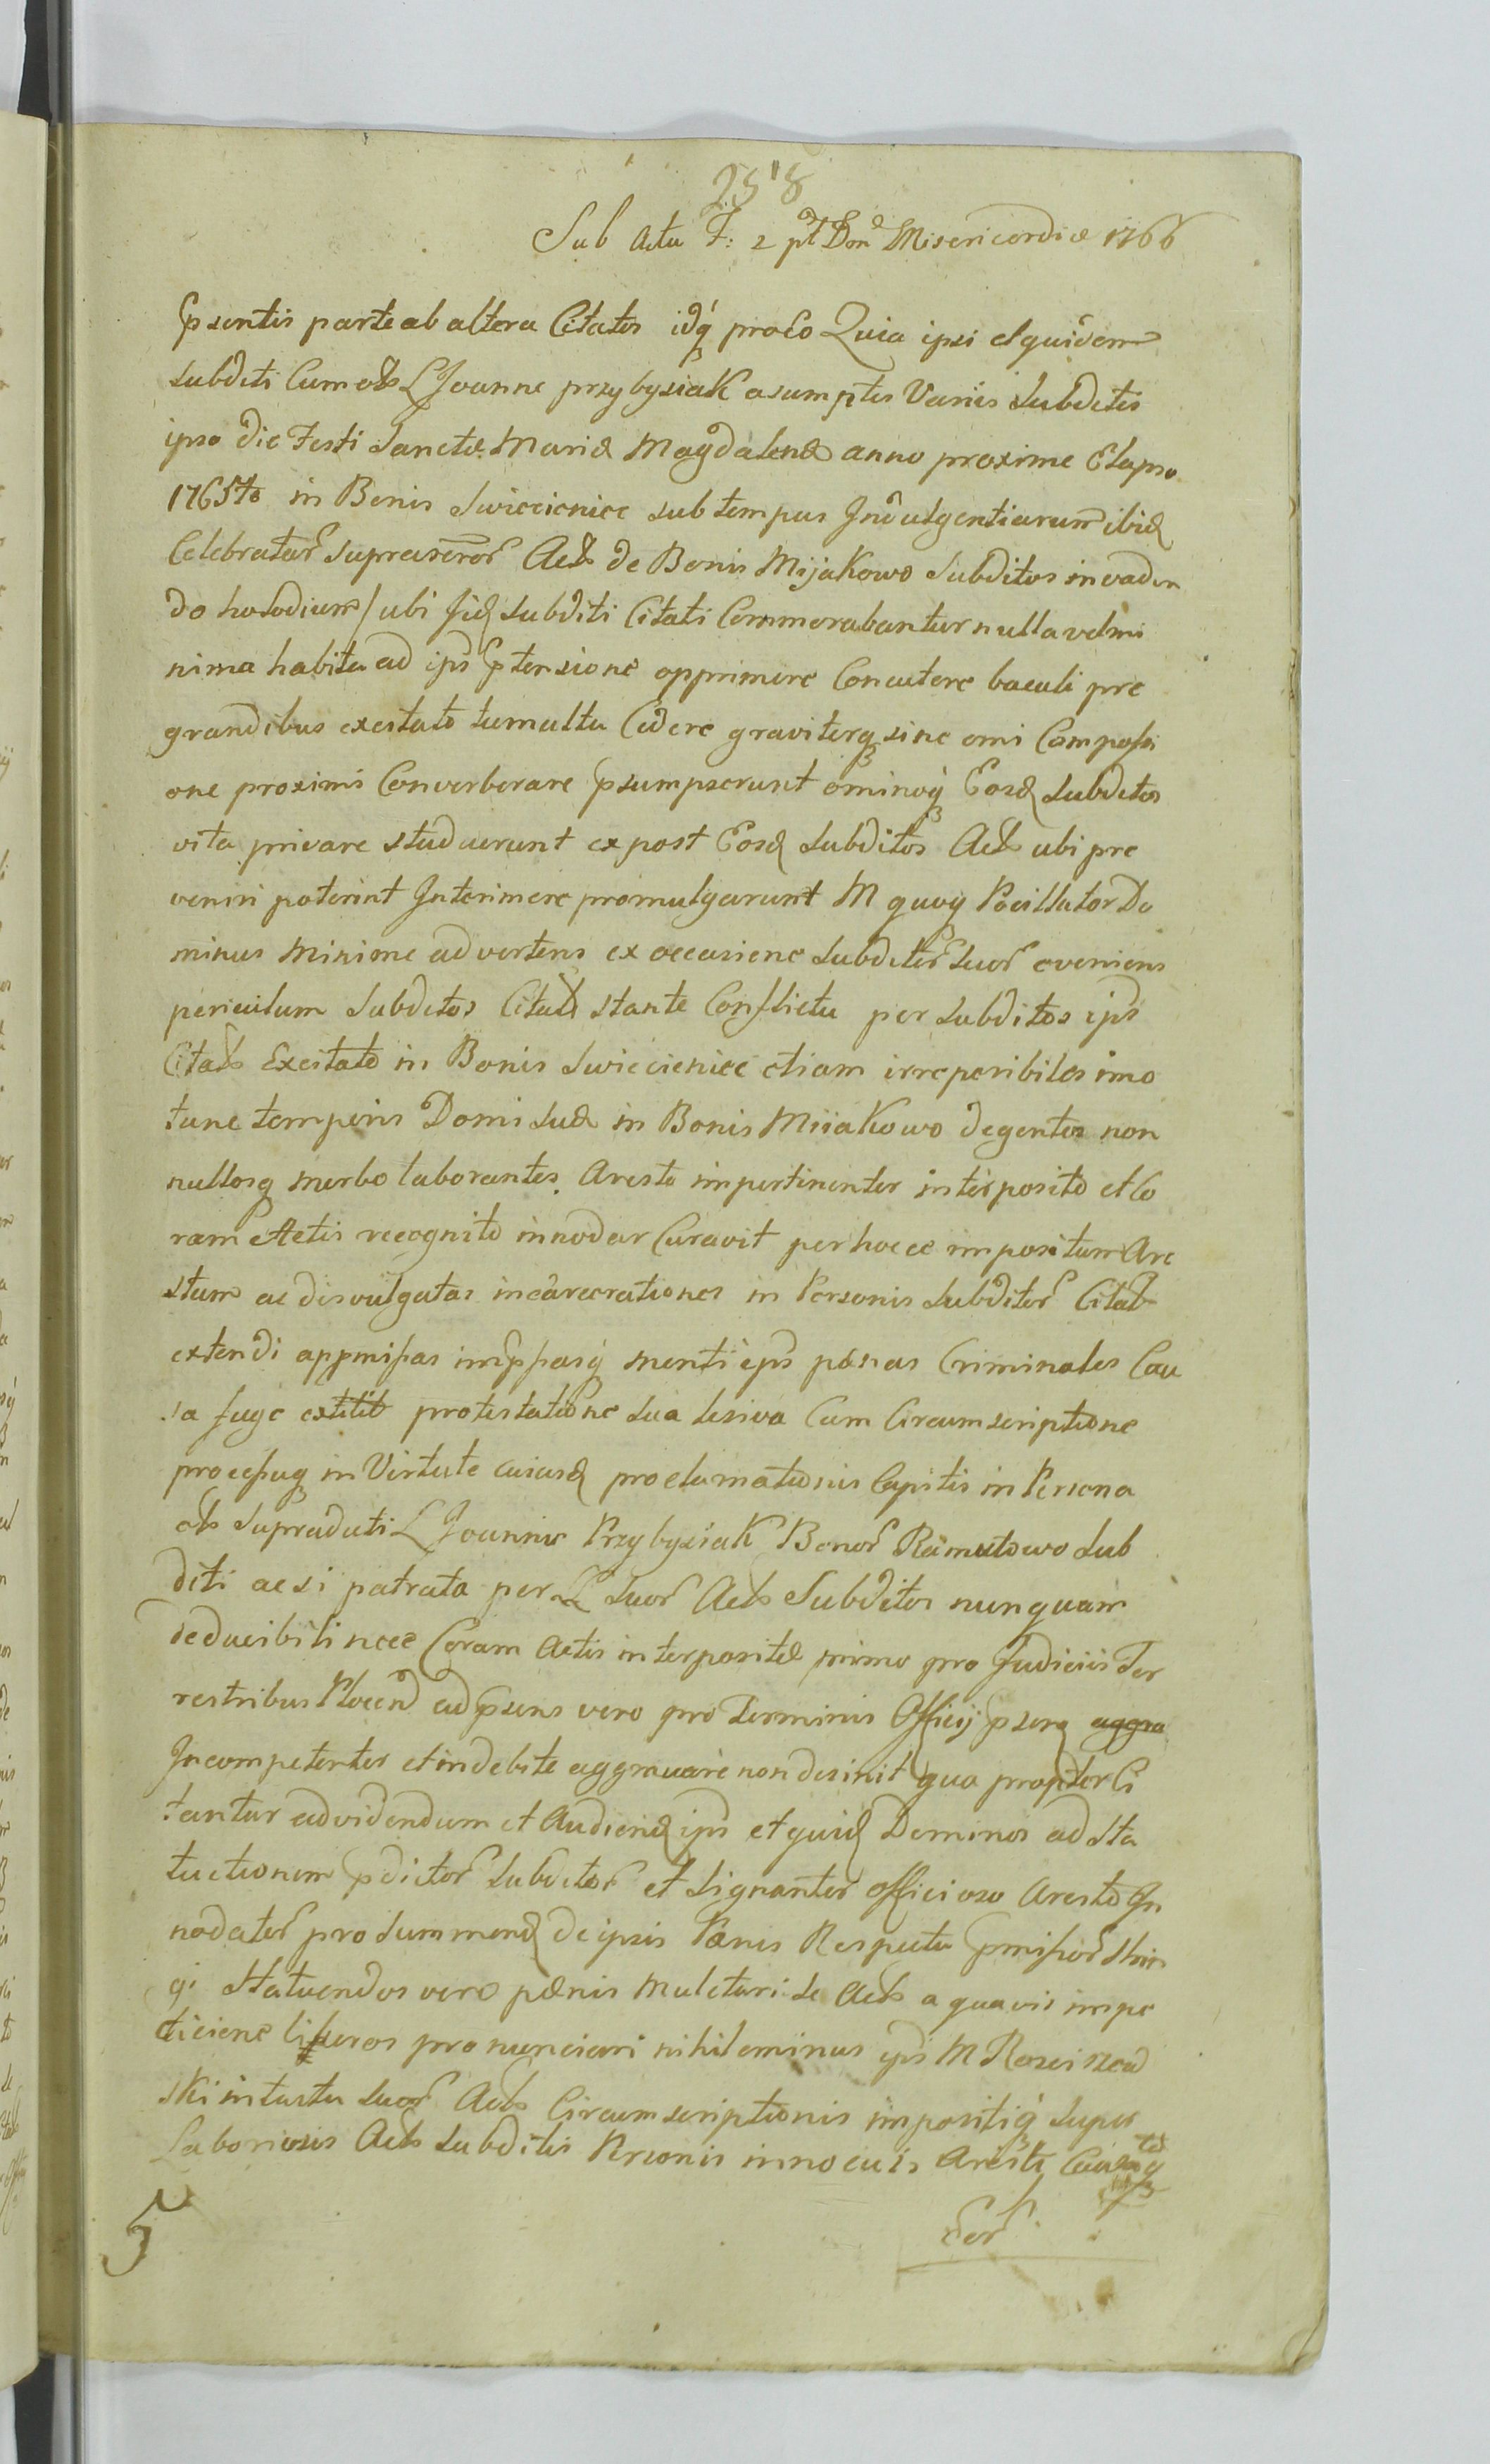 258
Sub Actu F: 2 pt Don Misericordiæ 1766
Psentis parte ab altera Citatos idq proeo Quia ipsi et quidem
subditi Cum olo L Joanne przybysiak asumptis Variis subditis
ipso die Festi Sanctæ Mariæ Magdalenæ anno proxime Elapso
1765to in Bonis Swiecienice sub tempus Indulgentiarum ibid
Celebratar suprascror Actts de Bonis Mijakowo Subditos invaden
do hospodium / ubi Jid subditi Citati Commorabantur nulla vel mi
nima habita ad ips Ptensione opprimere Concutere baculi pre
grandibus excitato tumultu Cedere graviterq sine omi Compassi
one proximi Converberare psumpserunt ominoq Eosd subditos
vita privare studuerunt ex post Eosd subditos Actts ubi pre
veniri poterint Interimere promulgarunt M quoq Pocillator Do
minus Minime advertens ex occasione subditor suor eveniens
periculum Subditos Citatt stante Conflictu per subditos ips
Citatts Excitato in Bonis Swiecienice etiam irreperibiles imo
tunc temporis Domi suæ in Bonis Mijakowo degentes non
nullosq morbo laborantes Aresto impertinenter interposito et Co
ram Actis recognito innodar Curavit per hocce impositum Are
stum ac disvulgatas incarcerationes in Personis subditor Citatt
extendi appmissas imppssasq menti ips pænas Criminales Cau
sa fuge extitit protestatione sua lesiva Cum Circumscriptione
processuq in Virtute cuiusd proclamationis Capitis in Persona
olo Supradicti L Joannis Przybysiak Bonor Ramutowo Sub
diti ac si patrata per L suor Actts Subditos nunquam
deducibili necc Coram Actis interpositæ primo pro Judiciis Ter
restribus Plocen ad psens vero pro Terminis Officij psens aggra
Incompetenter et indebite aggravare non desinit qua propter Ci
tantur ad videndum et Audiend ips et quid Dominos ad Sta
tuitionem pdictor subditor et signanter officioso Aresto In
nodator pro summend de ipsis Pænis Respectu pmissor Strin
gi Statuendos vero pænis Mulctari se Actts a quavis impe
ticione liberos pronunciari nihilominus ips M Rosciszew
ski intuitu suor Actts Circumscriptionis impositiq super
Laboriosis Actts subditis Personis innocuis Aresti
cor